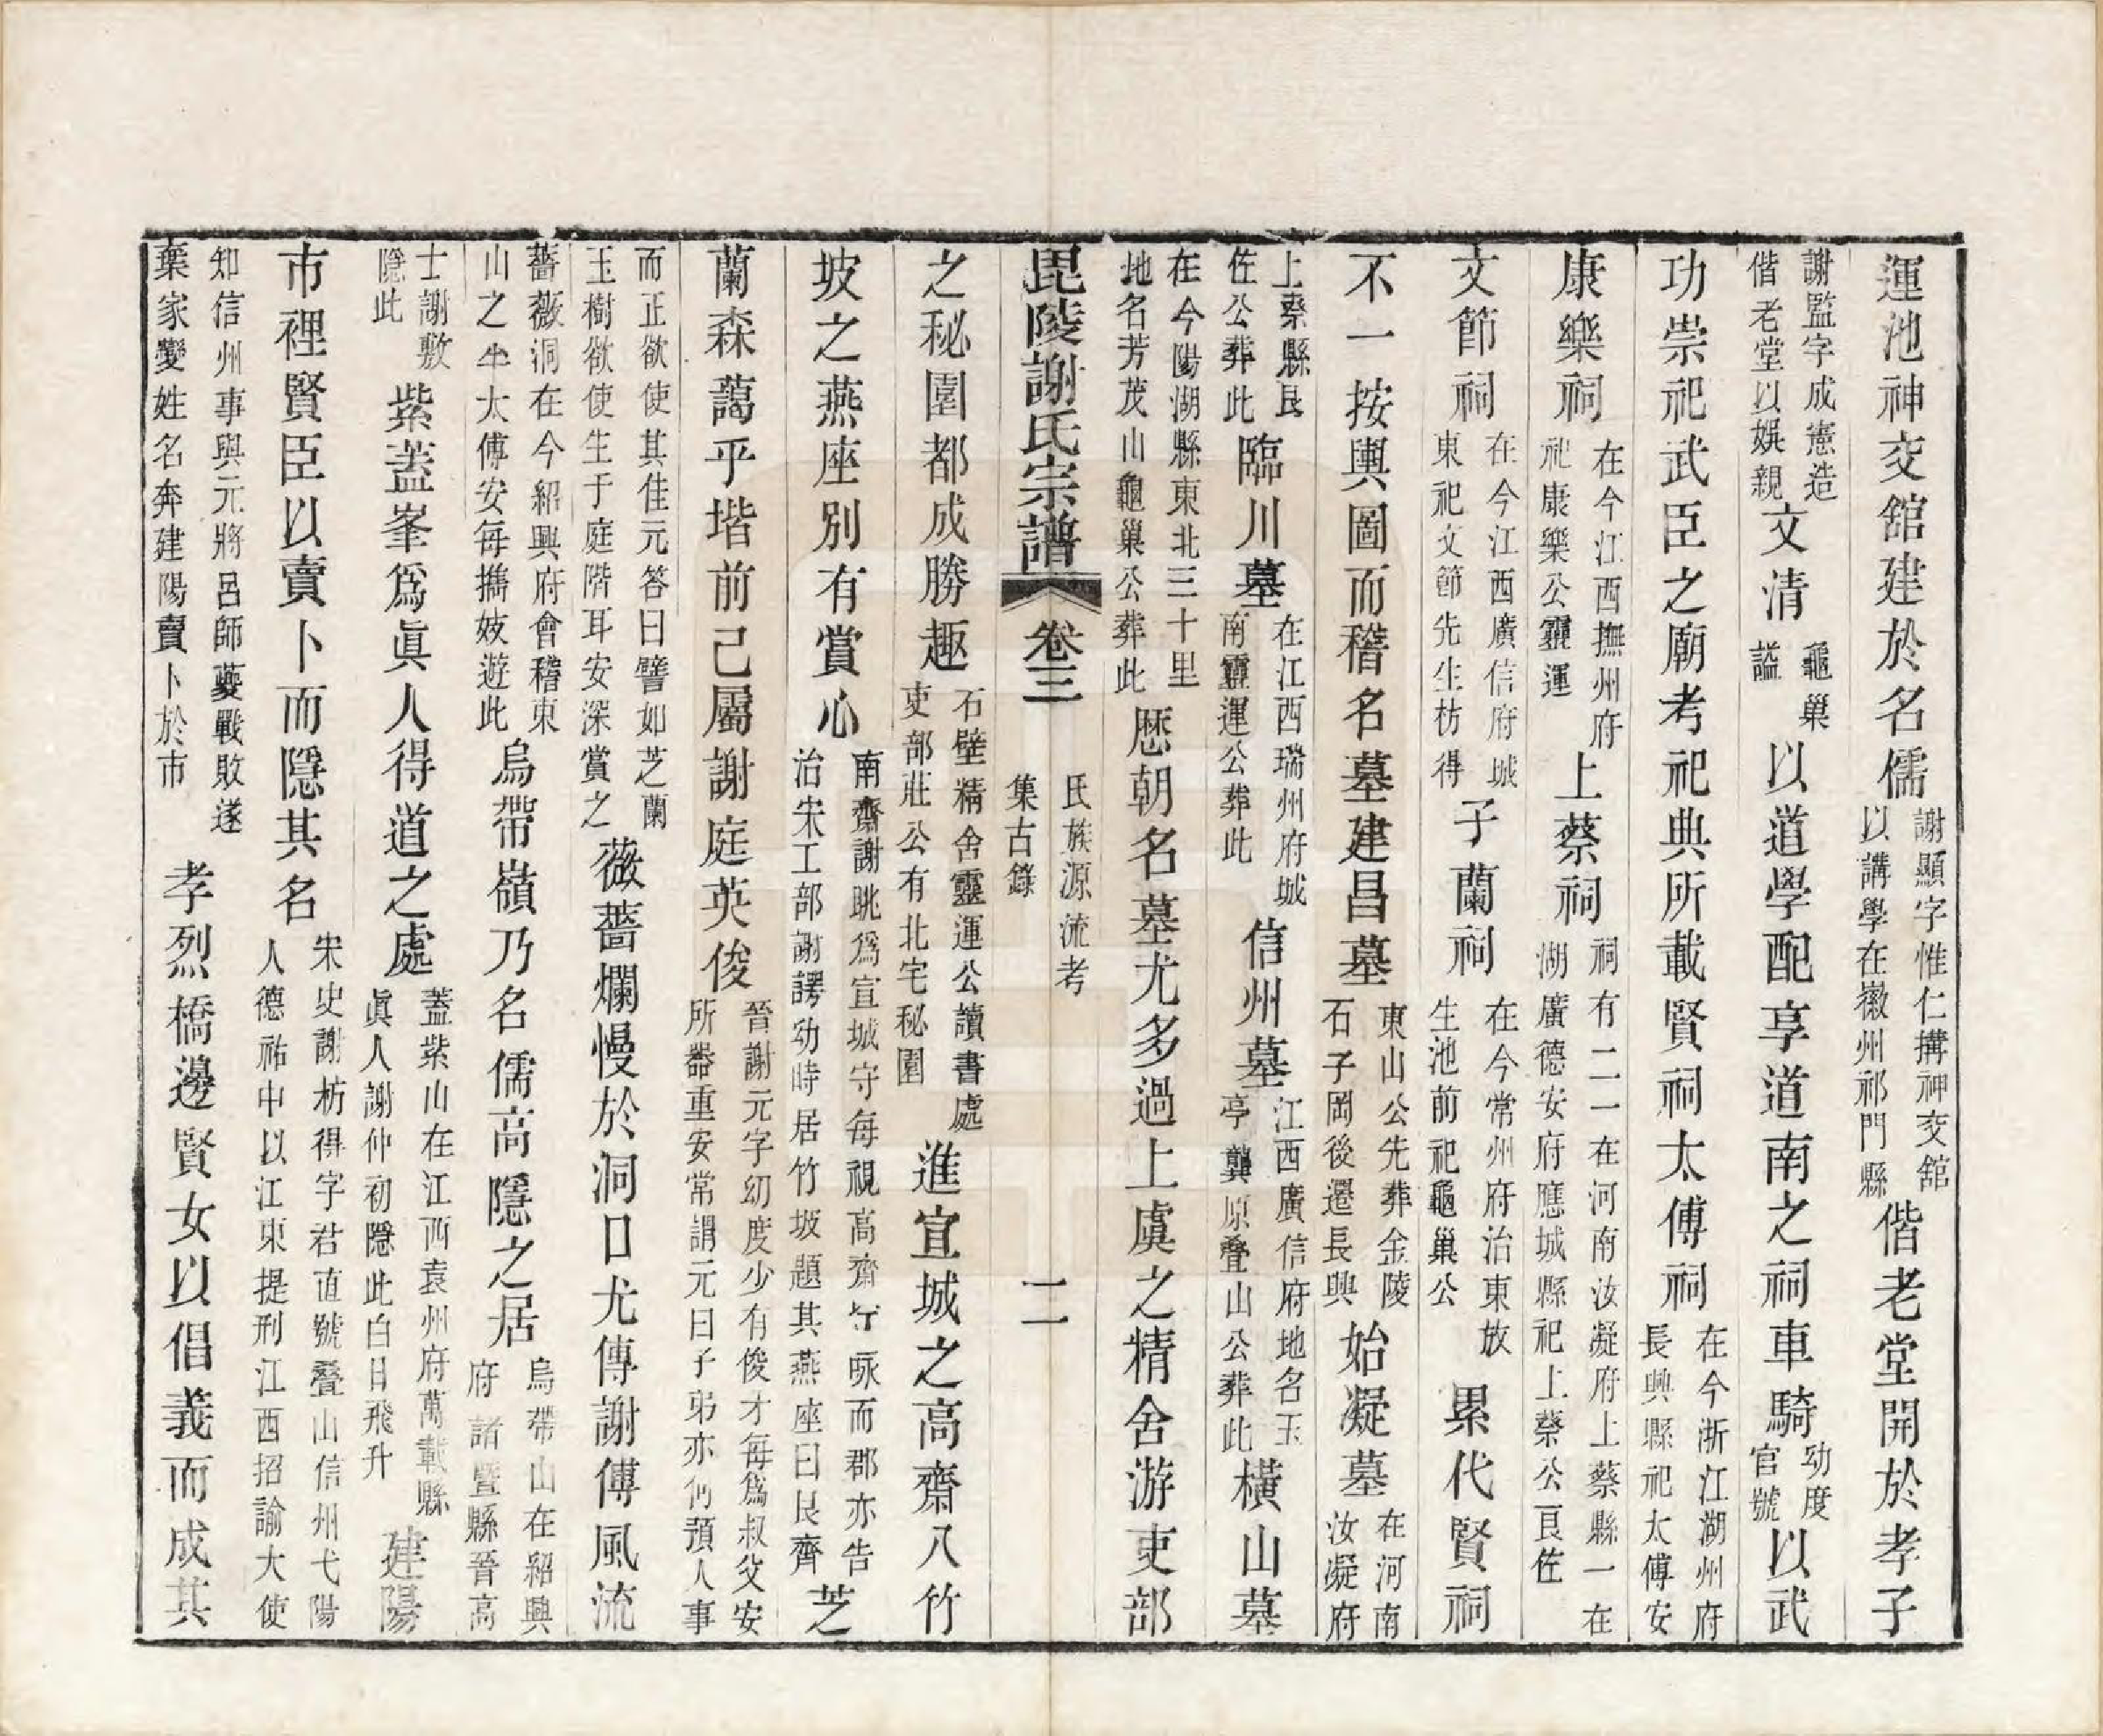 運池神交舘建於名儒謝顯字惟仁搆神交舘以講學在徽州祁門縣偕老堂開於孝子
謝監字成憲造偕老堂以娛親文清龜巢謚以道學配享道南之祠車騎幼度官號以武
功崇祀武臣之廟考祀典所載賢祠太傅祠在今浙江湖州府長興縣祀太傅安
康樂祠在今江西撫州府祀康樂公靈運上蔡祠祠有二一在河南汝凝府上蔡縣一在湖廣德安府應城縣祀上蔡公良佐
文節祠在今江西廣信府城東祀文節先生枋得子蘭祠在今常州府治東放生池前祀龜巢公累代賢祠
不一按輿圖而稽名墓建昌墓東山公先葬金陵石子岡後遷長興始凝墓在河南汝凝府
上蔡縣良佐公葬此臨川墓在江西瑞州府城南靈運公葬此信州墓江西廣信府地名玉亭龔原叠山公葬此橫山墓
在今陽湖縣東北三十里地名芳茂山龜巢公葬此歷朝名墓尤多過上虞之精舍游吏部
毘陵謝氏宗譜 卷三 氏族源流考 集古錄 二
之秘圍都成勝趣石壁精舍靈運公讀書處吏部莊公有北宅秘圍進宣城之高齋八竹
坡之燕座別有賞心南齋謝眺爲宣城守每視高齋吟咏而郡亦告治宋工部謝諤幼時居竹坡題其燕座曰艮齊芝
蘭森藹乎堦前己屬謝庭英俊晉謝元字幼度少有俊才每爲叔父安所器重安常謂元曰子弟亦何預人事
而正欲使其佳元答曰譬如芝蘭玉樹欲使生于庭階耳安深賞之薇薔爛慢於洞口尤傳謝傅風流
薔薇洞在今紹興府會稽東山之半太傅安每携妓遊此烏帶嶺乃名儒高隱之居烏帶山在紹興府諸暨縣晉高
士謝敷隱此紫蓋峯爲眞人得道之處蓋紫山在江西袁州府萬載縣眞人謝仲初隱此白日飛升建陽
市裡賢臣以賣卜而隱其名宋史謝枋得字君直號叠山信州弋陽人德祐中以江東提刑江西招諭大使
知信州事與元將呂師夔戰敗遂棄家變姓名奔建陽賣卜於市孝烈橋邊賢女以倡義而成其